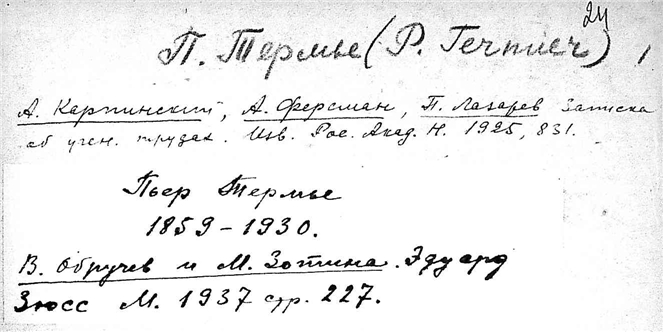 24
П. Термье (P. Termier)
А. Карпинский, А. Ферсман, П. Лазарев Записка
об учен. трудах. Изв. Рос. Акад. Н. 1925, 831.
Пьер Термье
1859-1930.
В. Обручев и М. Зотина. Эдуард
Зюсс М. 1937 стр. 227.